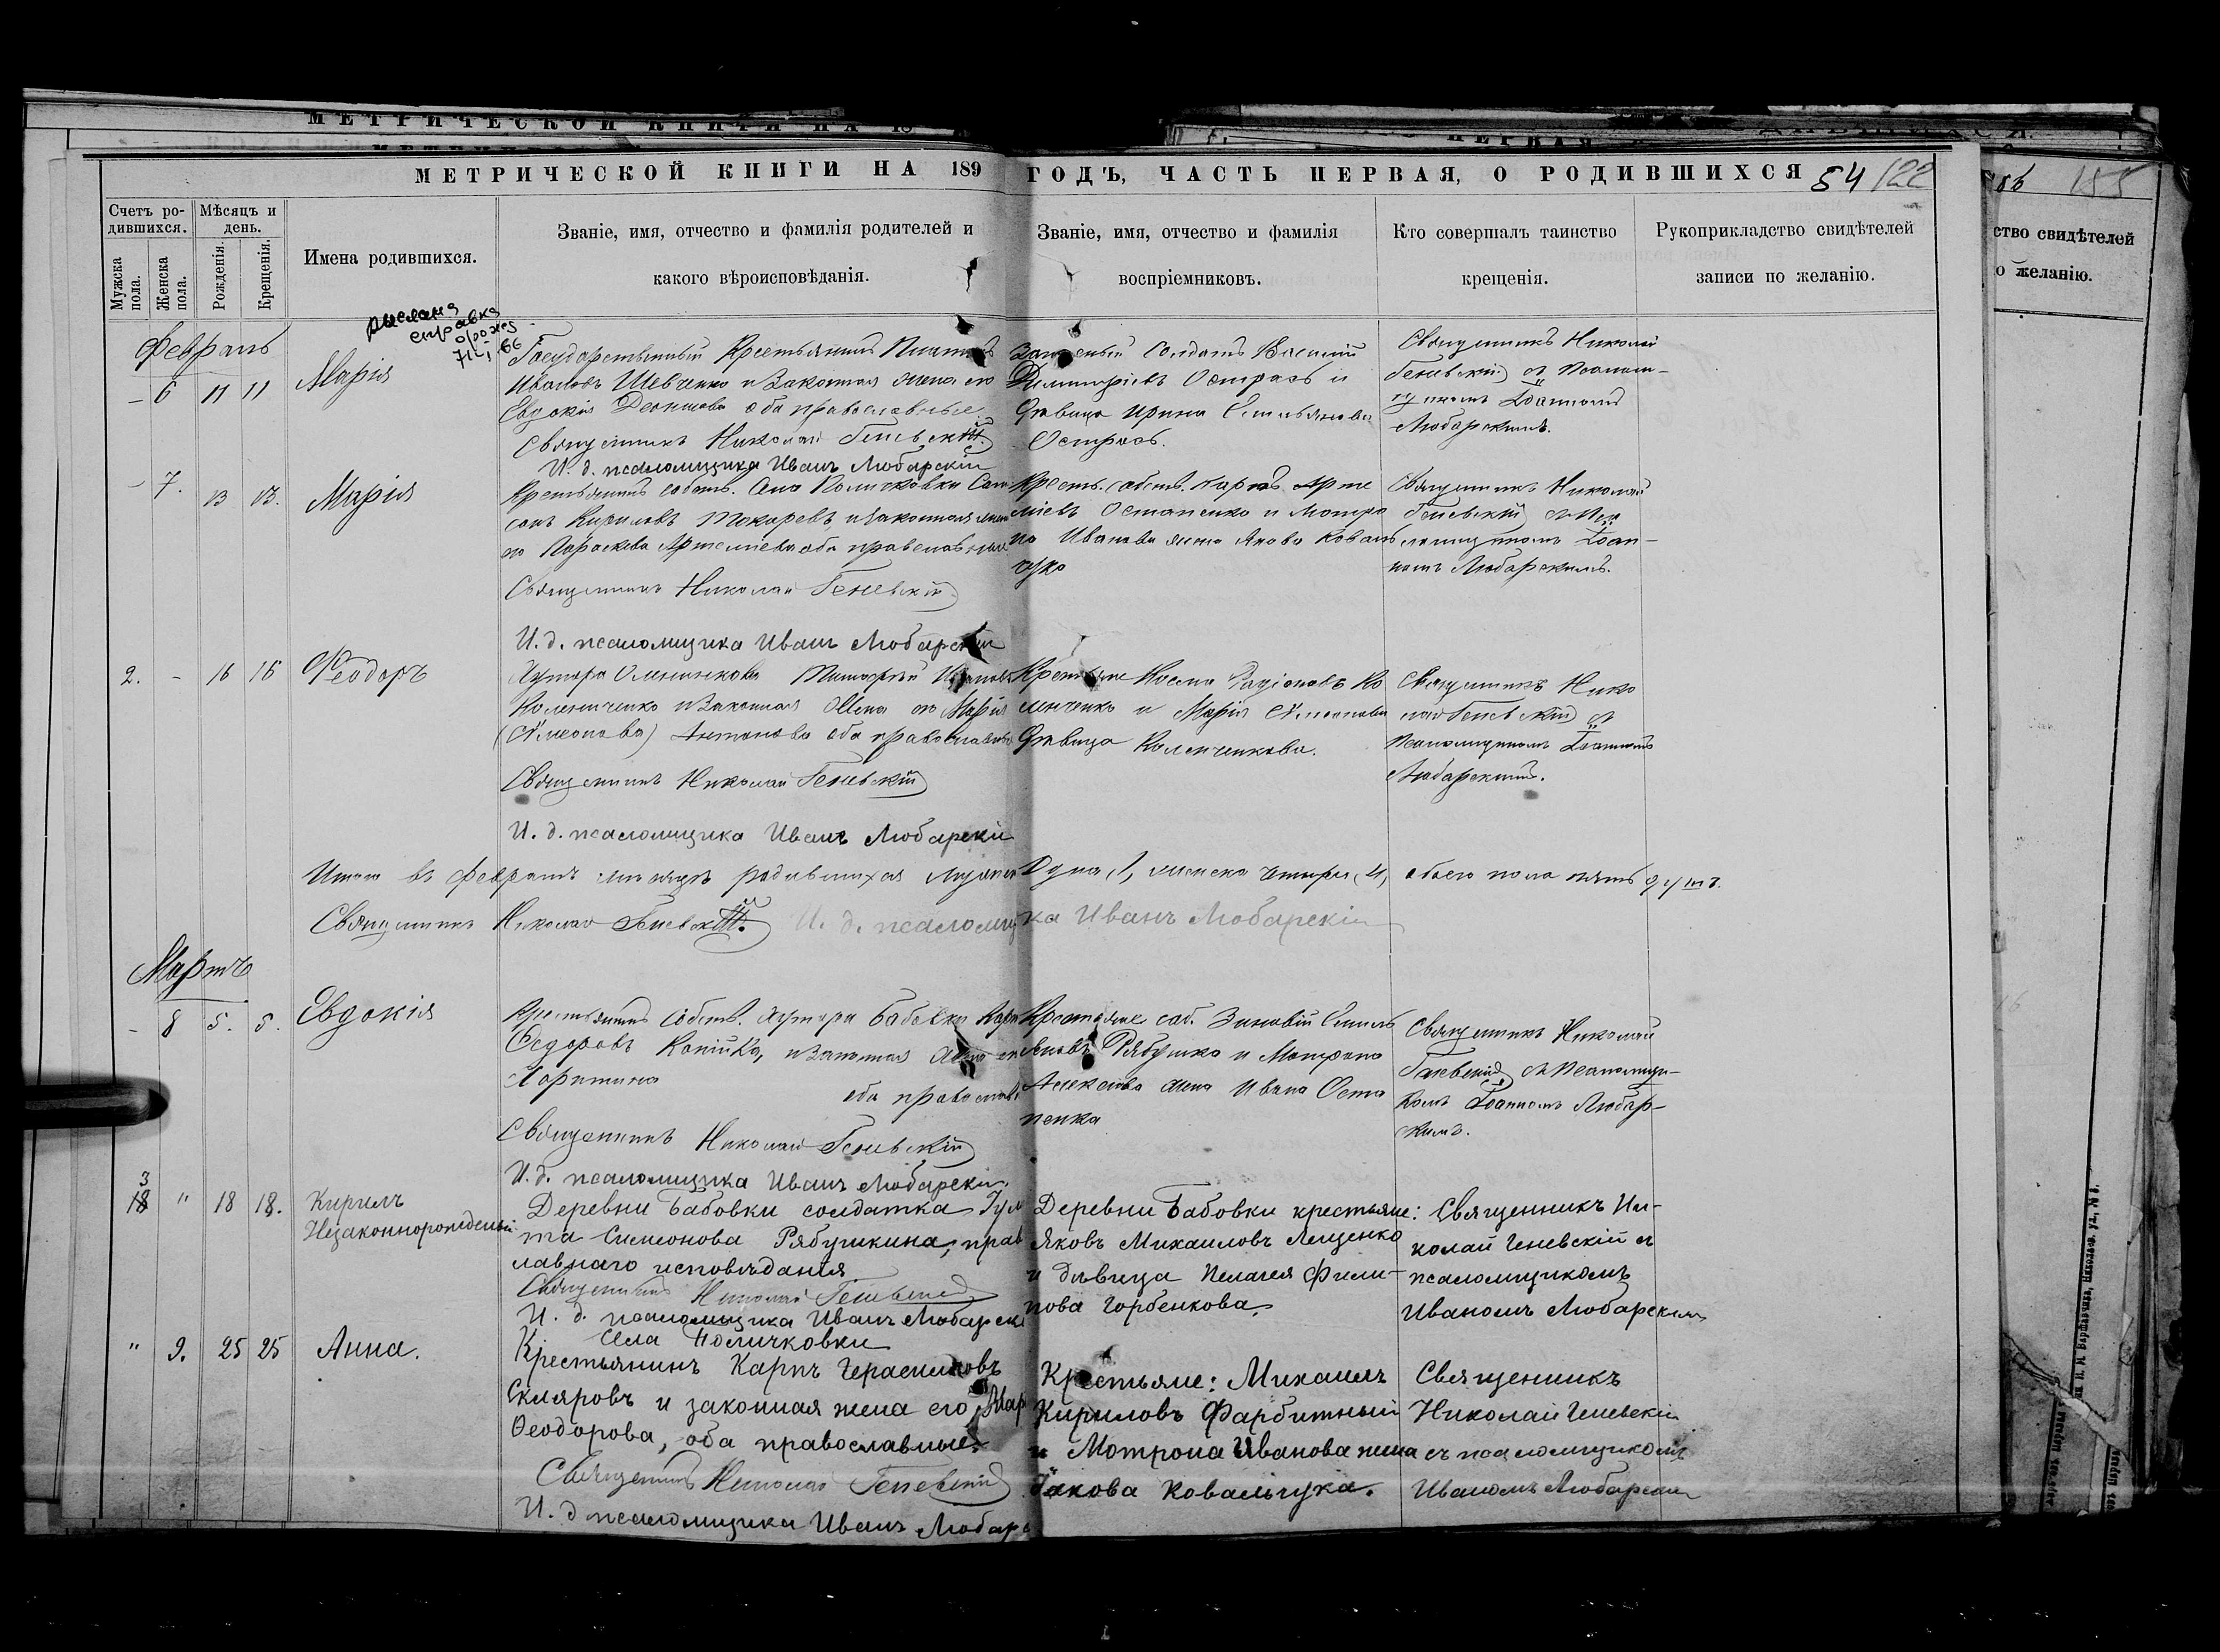 МЕТРИЧЕСКОЙ КНИГИ НА 189
ГОДЪ, ЧАСТЬ ПЕРВАЯ, О РОДИВШИХСЯ 54 122
155
Счетъ ро-
дившихся.
Мѣсяцъ и
день.
Мужска
пола.
Женска
пола.
Рожденія.
Крещенія.
Имена родившихся.
Званіе, имя, отчество и фамилія родителей и
какого вѣроисповѣданія.
Званіе, имя, отчество и фамилія
воспріемниковъ.
Кто совершалъ таинство
крещенія.
Рукоприкладство свидѣтелей
записи по желанію.
ство свидѣтелей
о желанію.
справка
Февраль
– 6 11 11 Марія
Государственный Крестьянинъ
Ивановъ Шевченко и Законная жена его
Евдокія оба православные.
Священникъ Николай Геневскій
И. д. псаломщика Иванъ Любарскій
Солдатъ Василій
Димитріевъ Остраст и
Дѣвица Ирина
Священникъ Николай
Геневскій съ Псалом-
щикомъ Іоанномъ
Любарскимъ.
– 7. 13 13. Марія
Крестьянинъ собств. Села Поличковки
Кириловъ Токаревъ и законная жена
его Параскева Артеміева оба православные
Священникъ Николай Геневскій
И. д. псаломщика Иванъ Любарскій
Крестьян. собств. Карпъ Арте
міевъ Остапенко и Мотро
на Иванова жена Якова Коваль
чука
Священникъ Николай
Геневскій съ Пса
ломщикомъ Іоан-
номъ Любарскимъ.
2. – 16 16 Ѳеодоръ
Хутора Тимофей Ивановъ
Коленченко и Законная Жена его Марія
(Симеонова) Антонова оба православные
Священникъ Николай Геневскій
И. д. псаломщика Иванъ Любарскій
Крестьяне Косма Родіоновъ Ко
ленченко и Марія Симеонова
Дѣвица Коленченкова.
Священникъ Нико
лай Геневскій съ
Псаломщикомъ Іоанномъ
Любарскимъ.
Итого въ Февралѣ мѣсяцѣ родившихся мужска
одна 1, женска четыре, 4, обоего пола пять душъ.
Священникъ Николай Геневскій. И. д. псаломщика Иванъ Любарскій
Мартъ
– 8 5. 5. Евдокія
Крестьянинъ Собств. Хутора Бабовки
Ѳедоровъ Копійка, и Законная Жена его
Харитина
оба православ
Священникъ Николай Геневскій
И. д. псаломщика Иванъ Любарскій
Крестьяне соб. Зиновій Емиль
яновъ Рябушка и Матрона
Алексѣева жена Ивана Оста
пенка
Священникъ Николай
Геневскій съ Псаломщи-
комъ Іоанномъ Любар-
скимъ.
3
18 " 18 18. Кирилъ
Незаконнорожденный
Деревни Бабовки солдатка Гул
та Симеонова Рябушкина, прав
лавнаго исповѣданія
Священникъ Николай Геневскій
И. д. псаломщика Иванъ Любарскі
Деревни Бабовки крестьяне:
Яковъ Михаиловъ Лещенко
и дѣвица Пелагея Фили-
пова Горбенкова.
Священникъ Ни-
колай Геневскій съ
псаломщикомъ
Иваномъ Любарским
" 9. 25 25 Анна.
Села Поличковки
Крестьянинъ Карпъ Герасимовъ
Скляровъ и законная жена его Мар
Ѳеодорова, оба православные
Священникъ Николай Геневскій
И. д псаломщика Иванъ Любарс
Крестьяне: Михаилъ
Кириловъ Фарбитный
и Мотрона Иванова жена
Іакова Ковальчука.
Священникъ
Николай Геневскій
съ псаломщикомъ
Иваномъ Любарским